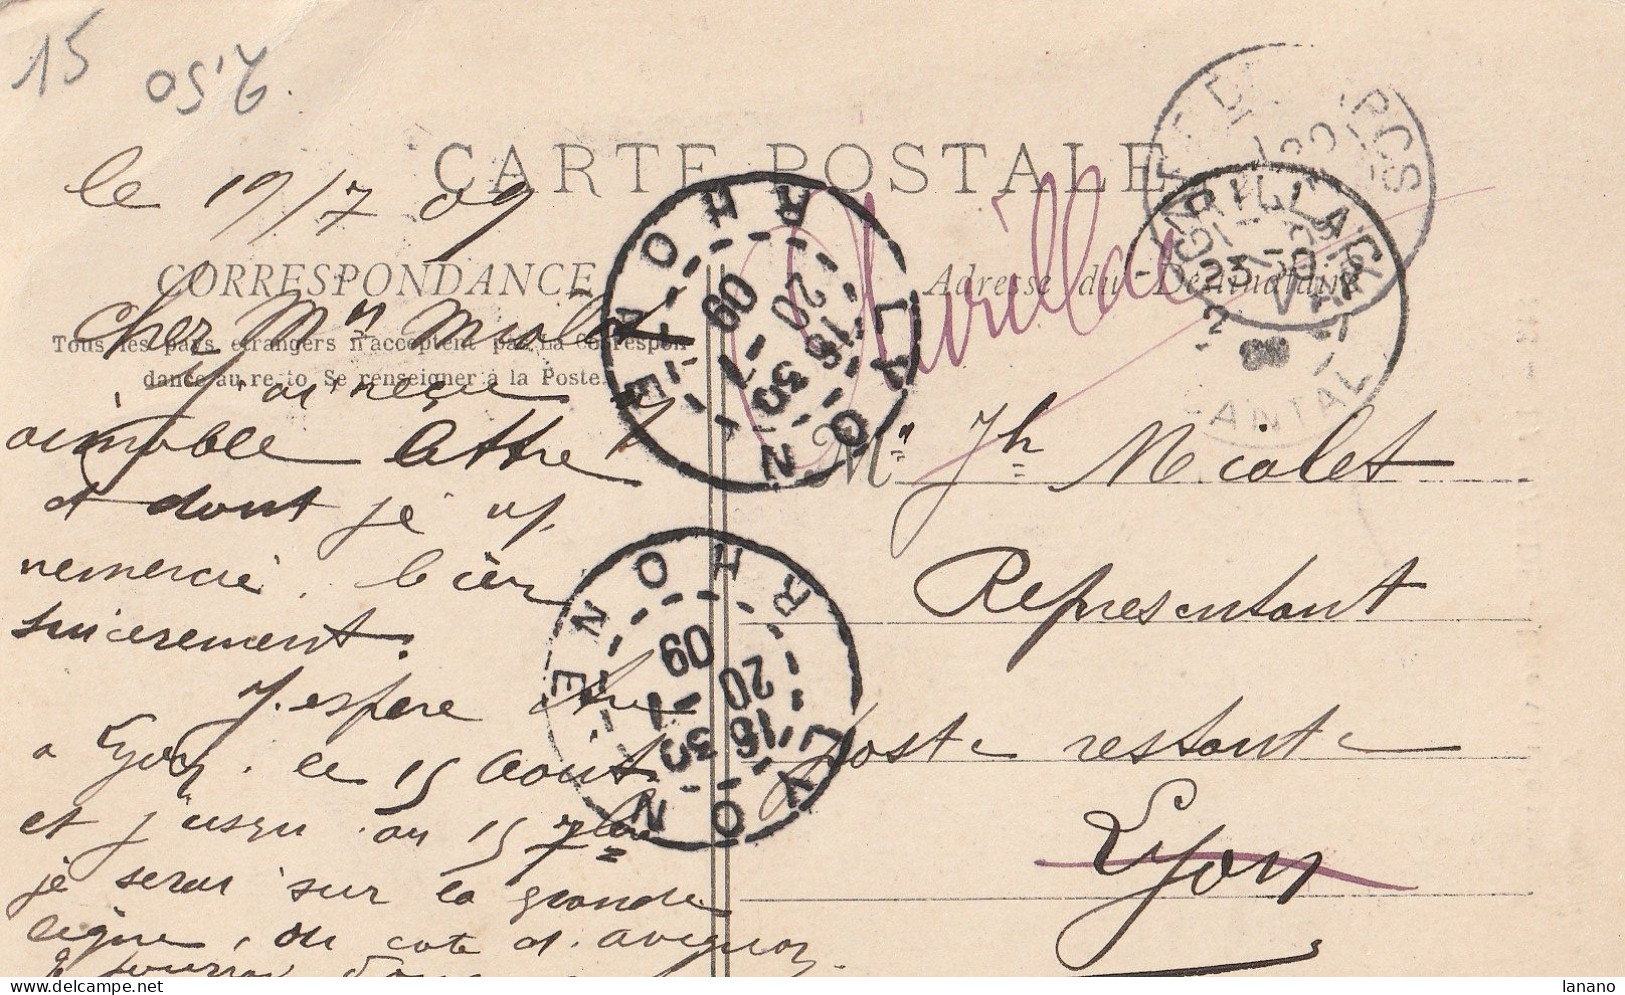 15
2.50
CARTE POSTALE
le 19/7 09
CORRESPONDANCE
Tous les pays étrangers n'acceptent pas la Correspon-
dance au recto Se renseigner à la Poste.
Cher Mr Micolet
J'ai reçu
aimable lettre
et dont je
remercie bien
sincerement.
J'espere être
a Lyon. le 15 Août
et jusqu'au 15 7bre
je serai sur la grande
ligne, du cote d'avignon.
Je pourrai donc
Adresse du Destinataire
Aurillac
Mr Jh Micolet
Representant
poste restante
Lyon
LYON RHONE
16 30
20 -7
09
LYON RHONE
16 30
20 -7
09
AURILLAC
23 -7
09
CANTAL
lanano